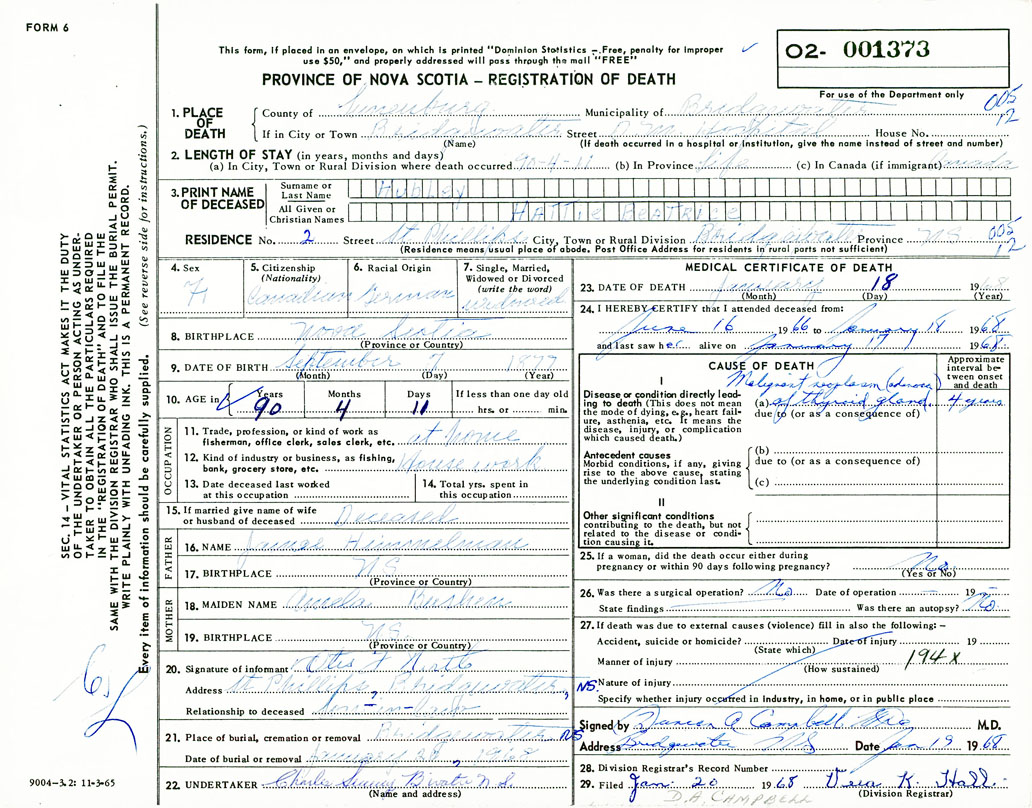 FORM 6
This form, if placed in an envelope, on which is printed "Dominion Statistics – Free, penalty for improper
use $50," and properly addressed will pass through the mail "FREE"
O2- 001373
PROVINCE OF NOVA SCOTIA – REGISTRATION OF DEATH
For use of the Department only
005
12
1. PLACE OF DEATH
County of Lunenburg Municipality of Bridgewater
If in City or Town Bridgewater Street D.M. Hospital House No.
(Name) (If death occurred in a hospital or institution, give the name instead of street and number)
2. LENGTH OF STAY (in years, months and days)
(a) In City, Town or Rural Division where death occurred 90-4-11 (b) In Province life (c) In Canada (if immigrant) Canada
3. PRINT NAME OF DECEASED
Surname or Last Name Hubley
All Given or Christian Names HATTIE BEATRICE
RESIDENCE No. 2 Street St Phillips City, Town or Rural Division Bridgewater Province NS
005
12
(Residence means usual place of abode. Post Office Address for residents in rural parts not sufficient)
4. Sex F
5. Citizenship (Nationality) Canadian
6. Racial Origin German
7. Single, Married, Widowed or Divorced (write the word) widowed
8. BIRTHPLACE Nova Scotia
(Province or Country)
9. DATE OF BIRTH September 7 1877
(Month) (Day) (Year)
10. AGE in Years 90 Months 4 Days 11 If less than one day old hrs. or min.
OCCUPATION
11. Trade, profession, or kind of work as fisherman, office clerk, sales clerk, etc. at home
12. Kind of industry or business, as fishing, bank, grocery store, etc. House work
13. Date deceased last worked at this occupation
14. Total yrs. spent in this occupation
15. If married give name of wife or husband of deceased Deceased
FATHER
16. NAME Himmelman
17. BIRTHPLACE NS
(Province or Country)
MOTHER
18. MAIDEN NAME
19. BIRTHPLACE NS.
(Province or Country)
20. Signature of informant Otis F
Address St Phillips, Bridgewater, NS.
Relationship to deceased Son-in-law
21. Place of burial, cremation or removal Bridgewater NS
Date of burial or removal January 20, 1968
22. UNDERTAKER Charles N.S.
(Name and address)
MEDICAL CERTIFICATE OF DEATH
23. DATE OF DEATH January 18 1968
(Month) (Day) (Year)
24. I HEREBY CERTIFY that I attended deceased from:
June 16 1966 to January 18 1968
and last saw her alive on January 17 1968
CAUSE OF DEATH
Approximate interval between onset and death
I
Disease or condition directly leading to death (This does not mean the mode of dying, e.g., heart failure, asthenia, etc. It means the disease, injury, or complication which caused death.)
Malignant neoplasm
(a) of thyroid gland 4 years
due to (or as a consequence of)
Antecedent causes
Morbid conditions, if any, giving rise to the above cause, stating the underlying condition last.
(b)
due to (or as a consequence of)
(c)
II
Other significant conditions
contributing to the death, but not related to the disease or condition causing it.
25. If a woman, did the death occur either during pregnancy or within 90 days following pregnancy? No
(Yes or No)
26. Was there a surgical operation? No Date of operation – 19
State findings Was there an autopsy? No
27. If death was due to external causes (violence) fill in also the following: –
Accident, suicide or homicide? Date of injury 19
(State which)
Manner of injury 194x
(How sustained)
Nature of injury
Specify whether injury occurred in industry, in home, or in public place
Signed by A Campbell M.D.
Address Bridgewater NS Date Jan 19 1968
28. Division Registrar's Record Number
29. Filed Jan. 20 1968 Vera K. Hall
(Division Registrar)
D.A. CAMPBELL
SEC. 14 – VITAL STATISTICS ACT MAKES IT THE DUTY
OF THE UNDERTAKER OR PERSON ACTING AS UNDER-
TAKER TO OBTAIN ALL THE PARTICULARS REQUIRED
IN THE "REGISTRATION OF DEATH" AND TO FILE THE
SAME WITH THE DIVISION REGISTRAR WHO SHALL ISSUE THE BURIAL PERMIT.
WRITE PLAINLY WITH UNFADING INK. THIS IS A PERMANENT RECORD.
Every item of information should be carefully supplied. (See reverse side for instructions.)
9004–3.2: 11-3-65